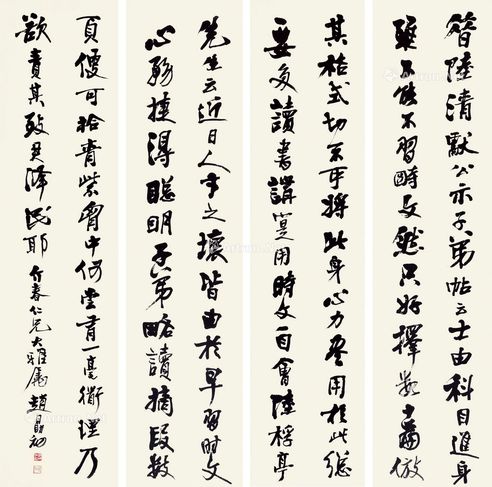 陸清獻公示子弟帖云士由科目進身
雖不能不習時文然只好擇數十篇倣
其格式切不可將此身心力盡用於此總
要多讀書講寔用時文自會陸桴亭
先生云近日人才之壞皆由於早習時文
心務捷得聰明子弟略讀摘段數
頁便可拾青紫胸中何嘗有一毫衜理乃
欲責其致君澤民耶
介春仁兄大雅屬 趙